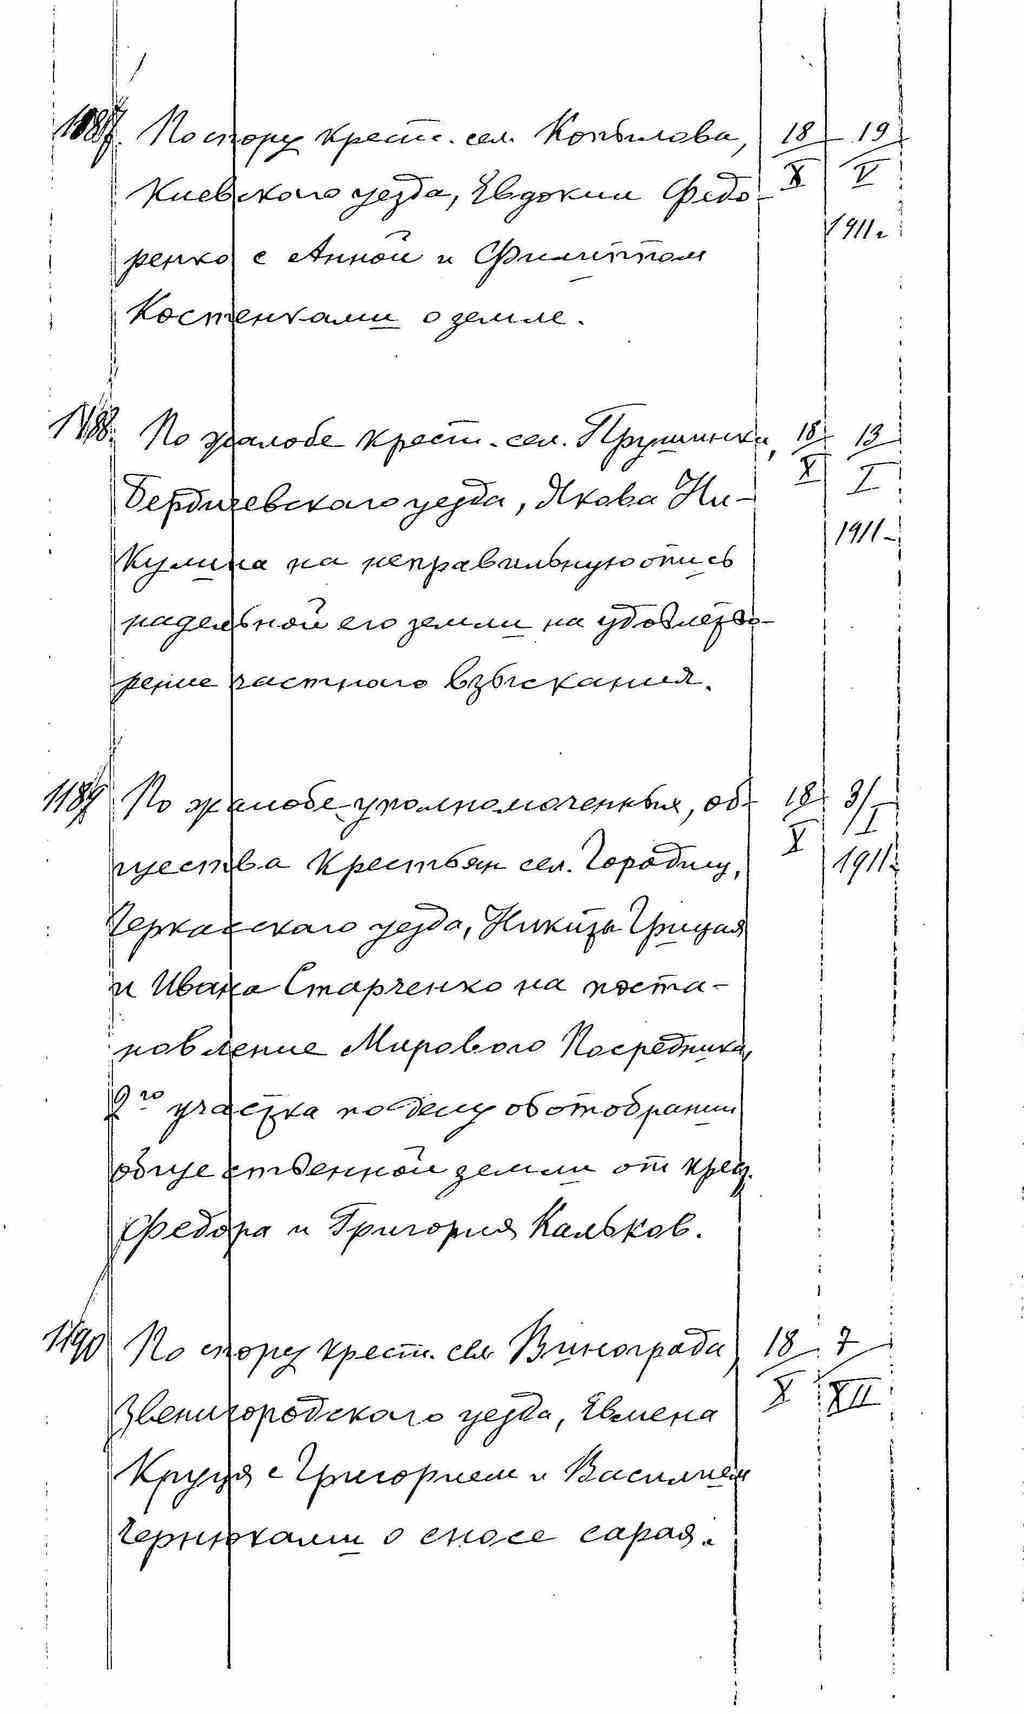 1187. По спору крест. сел. Копылова, 18 19
Киевского уезда, Евдокии Федо- X V
ренко с Анной и Филиппом 1911 г
Костенками о земле.
1188. По жалобе крест. сел. Пружинки, 18 13
Бердичевского уезда, Якова Ни- X I
кулина на неправильную опись 1911
надельной его земли на удовлетво-
рение частного взыскания.
1189 По жалобе уполномоченных, об- 18 3/I
щества крестьян сел. Городищ, X 1911
Черкасского уезда, Никиты Грицая
и Ивана Старченко на поста-
новление Мирового Посредника,
2го участка по делу об отобрании
общественной земли от крес.
Федора и Григория Кальков.
1190 По спору крест. сел. Винограда, 18 7
Звенигородского уезда, Евмена X XII
Круця с Григорием и Василием
Чернюками о сносе сарая.